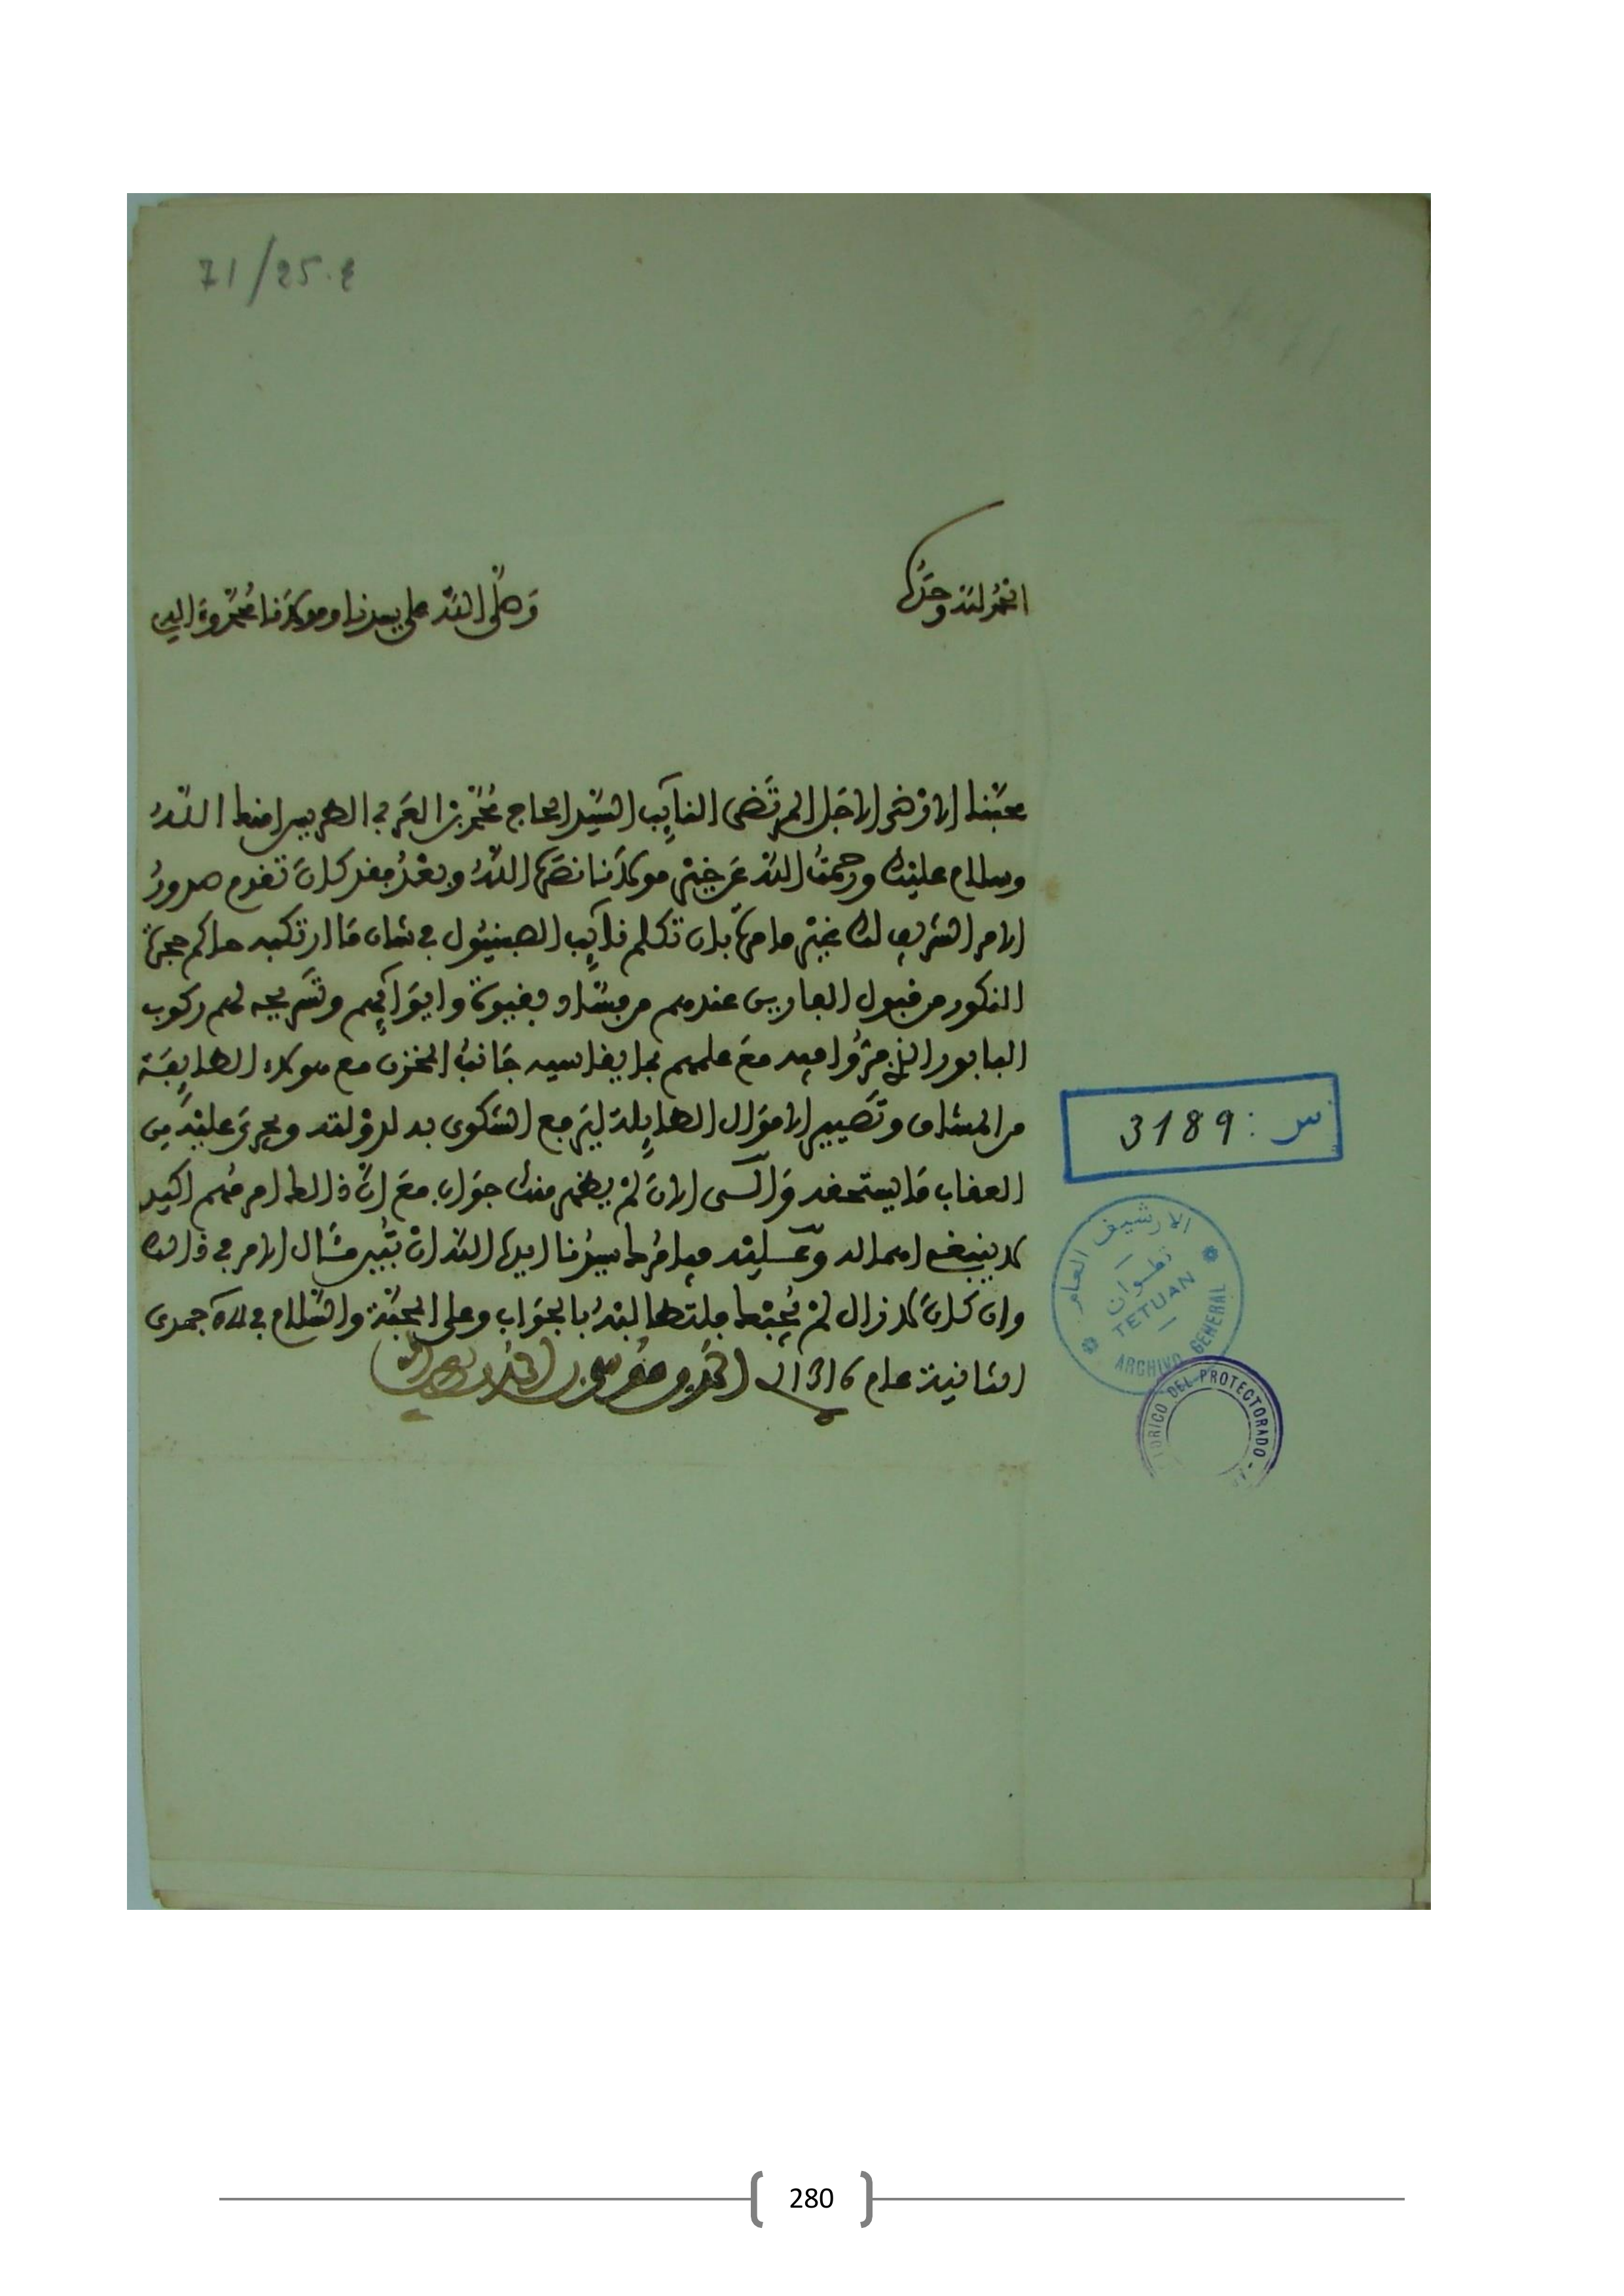 71/25.4
الحمد لله وحده
وصلى الله على سيدنا ومولانا محمد وءاله
محبنا الارضى الاجل المرتضى النايب السيد الحاج محمد بن العربي الطريس امنك الله
وسلام عليك ورحمت الله عن خير مولانا نصره الله وبعد فقد كان تقدم صدور
الامر الشريف لك بان تكلم نايب الصبنيول في شان ما ارتكبه حاكم حجرة
النكور من قبول الفارين عندهم من فساد بقيوة وايوائهم وتسريحه لهم ركوب
البابور الذي فروا فيه مع علمهم بما يقاسيه جانب المخزن مع هولاء الطايفة
من المشاق وتصيير الاموال الطايلة ليرفع الشكوى به لدولته ويجرى عليه من
العقاب ما يستحقه والى الان لم يظهر منك جواب مع ان ذالك امر مهم اكيد
لا ينبغي اهماله وعليه فيامرك سيدنا ايده الله ان تبين مئال الامر في ذالك
وان كان لا زال لم يجبك فلتطالبه بالجواب وعلى المحبة والسلام في جمدى
الثانية عام 1316
س : 3189
الارشيف العام
تطوان
TETUAN
ARCHIVO GENERAL
TORICO DEL PROTECTORADO
280